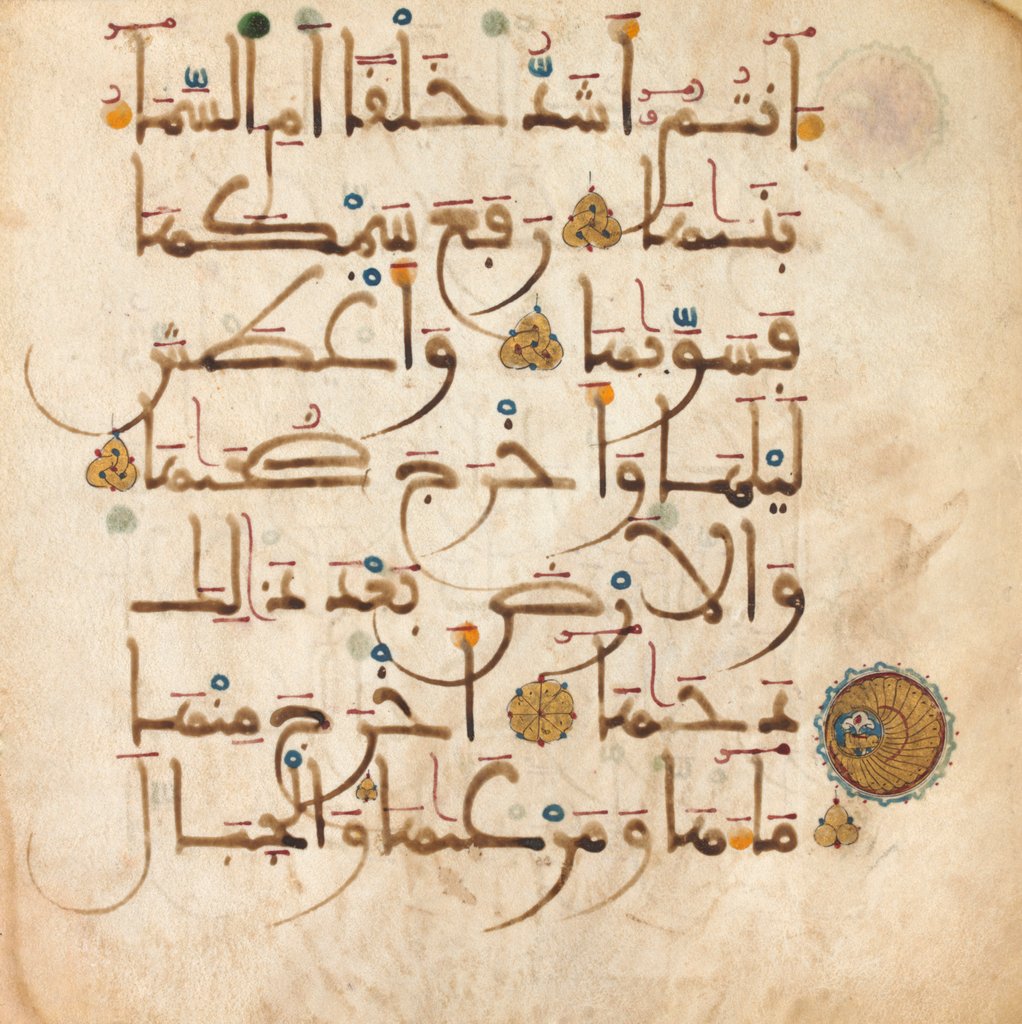 ءَأَنتُمُۥٓ أَشَدُّ خَلْقًا أَمِ ٱلسَّمَآءُ
بَنَىٰهَا رَفَعَ سَمْكَهَا
فَسَوَّىٰهَا وَأَغْطَشَ
لَيْلَهَا وَأَخْرَجَ ضُحَىٰهَا
وَٱلْأَرْضَ بَعْدَ ذَٰلِكَ
دَحَىٰهَآ أَخْرَجَ مِنْهَا
مَآءَهَا وَمَرْعَىٰهَا وَٱلْجِبَالَ